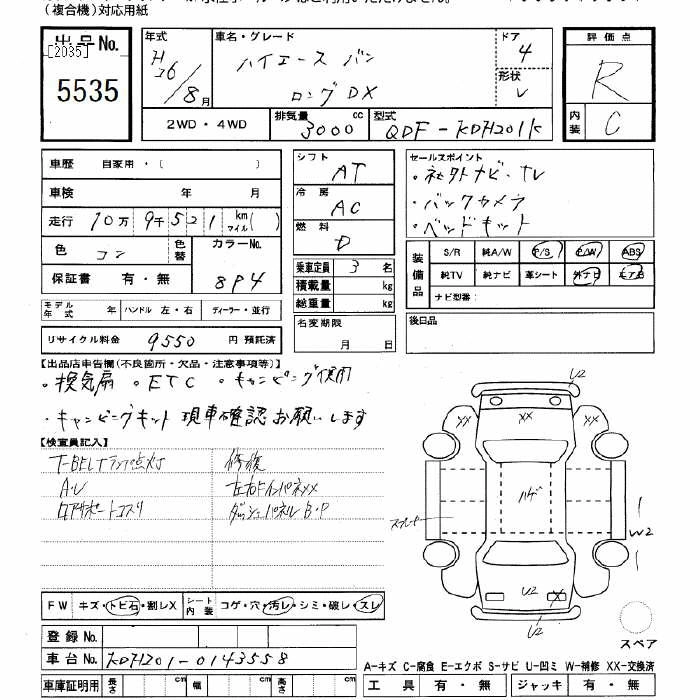 (複合機)対応用紙
出品No.
[2035]
5535
年式
H26/8月
車名・グレード
ハイエース バン
ロング DX
ドア
4
形状
V
評価点
R
内装
C
2WD・4WD
排気量
3000 cc
型式
QDF-KDH201K
車歴 自家用・( )
車検 年 月
走行 10万 9千 521 km マイル( )
色 コン
色替
カラーNo.
8P4
保証書 有・無
モデル年式 年 ハンドル 左・右 ディーラー・並行
リサイクル料金 9550 円 預託済
シフト
AT
冷房
AC
燃料
D
乗車定員 3 名
積載量 kg
総重量 kg
名変期限
月 日
セールスポイント
・社外ナビ・TV
・バックカメラ
・ベッドキット
装備品
S/R 純A/W P/S P/W ABS
純TV 純ナビ 革シート 外ナビ エアB
ナビ型番:
後日品
【出品店申告欄(不良箇所・欠品・注意事項等)】
・換気扇 ・ETC ・キャンピング使用
・キャンピングキット 現車確認お願いします
【検査員記入】
T-BELTランプ点灯 修復
A・U 左右Fインパネxx
ロアサポートコスリ ダッシュパネルB・P
FW キズ・トビ石・割レX
シート内装 コゲ・穴・汚レ・シミ・破レ・スレ
登録No.
車台No. KDH201-0143558
車庫証明用 長さ cm 幅 cm 高さ cm
U2
xx
xx
xx
ハゲ
スプレー
W2
U2
X
U2
スペア
A-キズ C-腐食 E-エクボ S-サビ U-凹ミ W-補修 XX-交換済
工具 有・無 ジャッキ 有・無